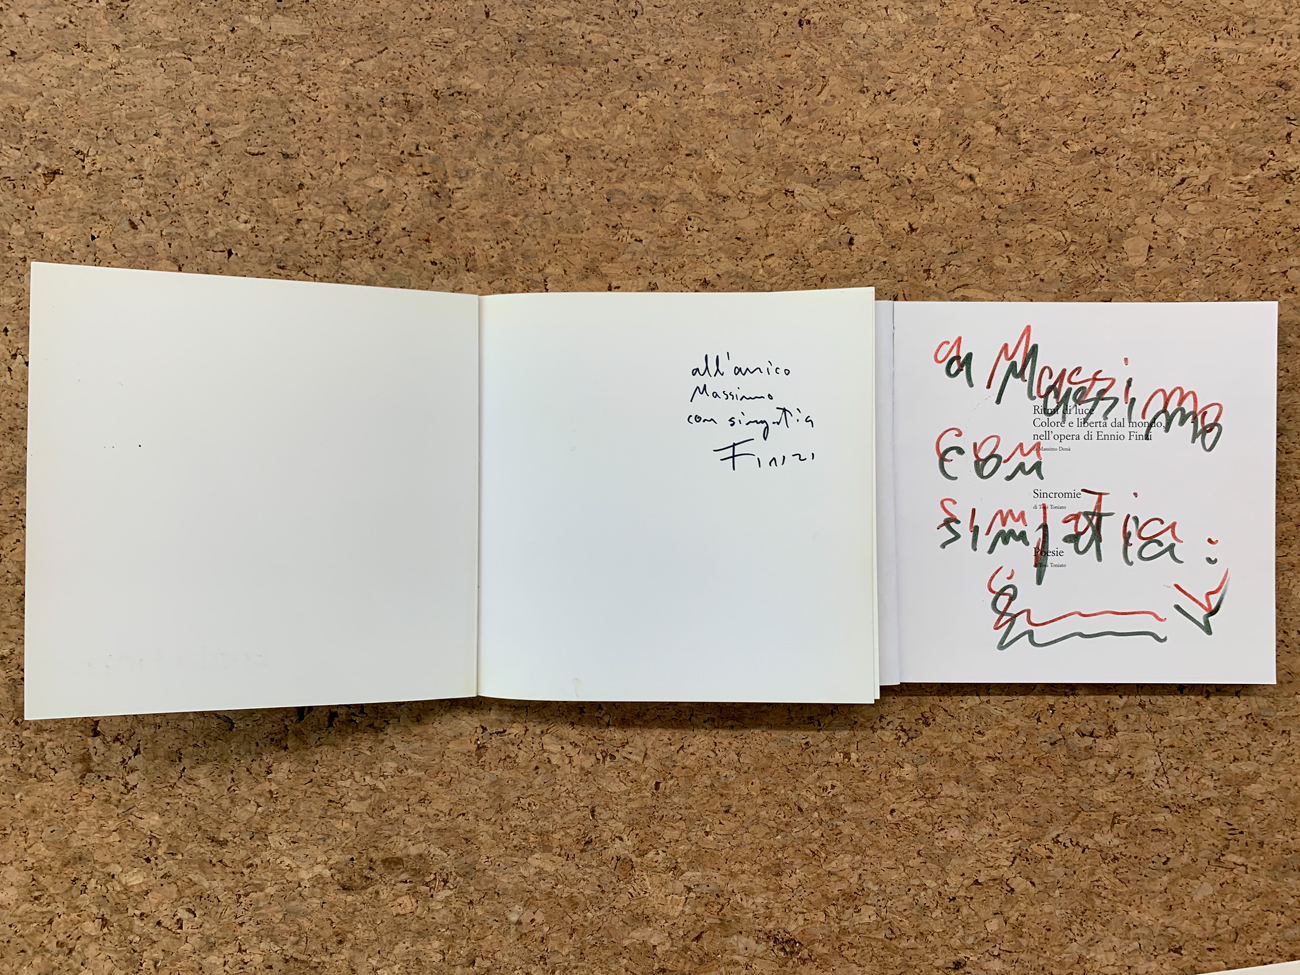 all'amico
Massimo
con simpatia
Finzi
a Massimo
Ritmi di luce
Colore e libertà dal mondo,
nell'opera di Ennio Finzi
di Massimo Donà
con
Sincromie
simpatia:
Poesie